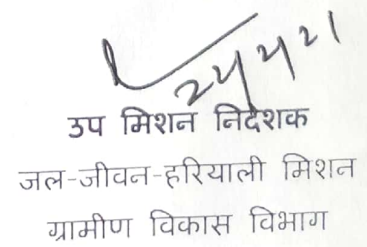 उप मिशन निदेशक
जल-जीवन-हरियाली मिशन
ग्रामीण विकास विभाग